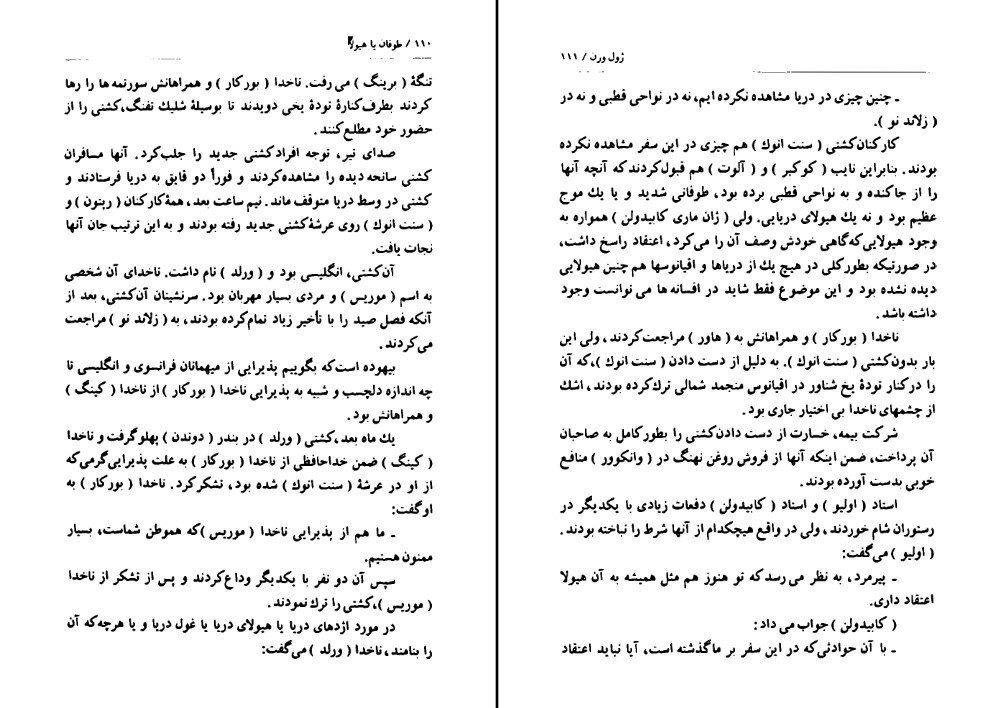 ۱۱۰ / طوفان یا هیولا
تنگهٔ ( برینگ ) می رفت. ناخدا ( بورکار ) و همراهانش سورتمه ها را رها
کردند بطرف کنارهٔ تودهٔ یخی دویدند تا بوسیلهٔ شلیک تفنگ، کشتی را از
حضور خود مطلع کنند .
صدای تیر، توجه افراد کشتی جدید را جلب کرد. آنها مسافران
کشتی سانحه دیده را مشاهده کردند و فوراً دو قایق به دریا فرستادند و
کشتی در وسط دریا متوقف ماند . نیم ساعت بعد ، همهٔ کارکنان ( رپتون ) و
( سنت انوک ) روی عرشهٔ کشتی جدید رفته بودند و به این ترتیب جان آنها
نجات یافت.
آن کشتی، انگلیسی بود و ( ورلد ) نام داشت. ناخدای آن شخصی
به اسم ( موریس ) و مردی بسیار مهربان بود . سرنشینان آن کشتی، بعد از
آنکه فصل صید را با تأخیر زیاد تمام کرده بودند ، به ( زلاند نو ) مراجعت
می کردند .
بیهوده است که بگوییم پذیرایی از میهمانان فرانسوی و انگلیسی تا
چه اندازه دلچسب و شبیه به پذیرایی ناخدا ( بورکار ) از ناخدا ( کینگ )
و همراهانش بود .
یك ماه بعد ، کشتی ( ورلد ) در بندر ( دوندن ) پهلو گرفت و ناخدا
( کینگ ) ضمن خداحافظی از ناخدا ( بورکار ) به علت پذیرایی گرمی که
از او در عرشهٔ ( سنت انوک ) شده بود ، تشکر کرد. ناخدا ( بورکار ) به
او گفت:
ـ ما هم از پذیرایی ناخدا ( موریس ) که هموطن شماست، بسیار
ممنون هستیم.
سپس آن دو نفر با یکدیگر وداع کردند و پس از تشکر از ناخدا
( موریس )، کشتی را ترك نمودند .
در مورد اژدهای دریا یا هیولای دریا یا غول دریا و یا هرچه که آن
را بنامند، ناخدا ( ورلد ) می گفت:
ژول ورن / ۱۱۱
ـ چنین چیزی در دریا مشاهده نکرده ایم، نه در نواحی قطبی و نه در
( زلاند نو ).
کارکنان کشتی ( سنت انوک ) هم چیزی در این سفر مشاهده نکرده
بودند. بنابراین نایب ( کوکبر ) و ( آلوت ) هم قبول کردند که آنچه آنها
را از جا کنده و به نواحی قطبی برده بود، طوفانی شدید و یا یك موج
عظیم بود و نه یك هیولای دریایی. ولی ( ژان ماری کابیدولن ) همواره به
وجود هیولایی که گاهی خودش وصف آن را می کرد ، اعتقاد راسخ داشت،
در صورتیکه بطور کلی در هیچ یك از دریاها و اقیانوسها هم چنین هیولایی
دیده نشده بود و این موضوع فقط شاید در افسانه ها می توانست وجود
داشته باشد .
ناخدا ( بورکار ) و همراهانش به ( هاور ) مراجعت کردند ، ولی این
بار بدون کشتی ( سنت انوک ). به دلیل از دست دادن ( سنت انوک )، که آن
را در کنار تودهٔ یخ شناور در اقیانوس منجمد شمالی ترك کرده بودند ، اشك
از چشمهای ناخدا بی اختیار جاری بود .
شرکت بیمه، خسارت از دست دادن کشتی را بطور کامل به صاحبان
آن پرداخت، ضمن اینکه آنها از فروش روغن نهنگ در ( وانکوور ) منافع
خوبی بدست آورده بودند .
استاد ( اولیو ) و استاد ( کابیدولن ) دفعات زیادی با یکدیگر در
رستوران شام خوردند ، ولی در واقع هیچکدام از آنها شرط را نباخته بودند .
( اولیو ) می گفت:
ـ پیرمرد، به نظر می رسد که تو هنوز هم مثل همیشه به آن هیولا
اعتقاد داری.
( کابیدولن ) جواب می داد :
ـ با آن حوادثی که در این سفر بر ما گذشته است، آیا نباید اعتقاد